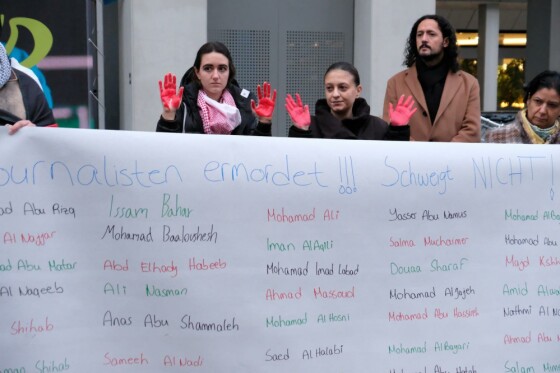 ournalisten ermordet !!! Schweigt NICHT!
ad Abu Rizq
Al Najjar
ad Abu Matar
Al Naqeeb
Shihab
man Shihab
Issam Bahar
Mohamad Baalousheh
Abd Elhady Habeeb
Ali Nasman
Anas Abu Shammaleh
Sameeh Al Nadi
Mohamad Ali
Iman Al Aqili
Mohamad Imad Labad
Ahmad Massoud
Mohamad Al Hosni
Saed Al Halabi
Yasser Abu Namus
Salma Mucharmer
Douaa Sharaf
Mohamad Al
Mohamad Abu
Mohamad Al Bayari
Mohamad Al B
Mohamad Abu
Majd Kshk
Amid Alaa
Nathmi Al N
Ahmad Abu
Salam